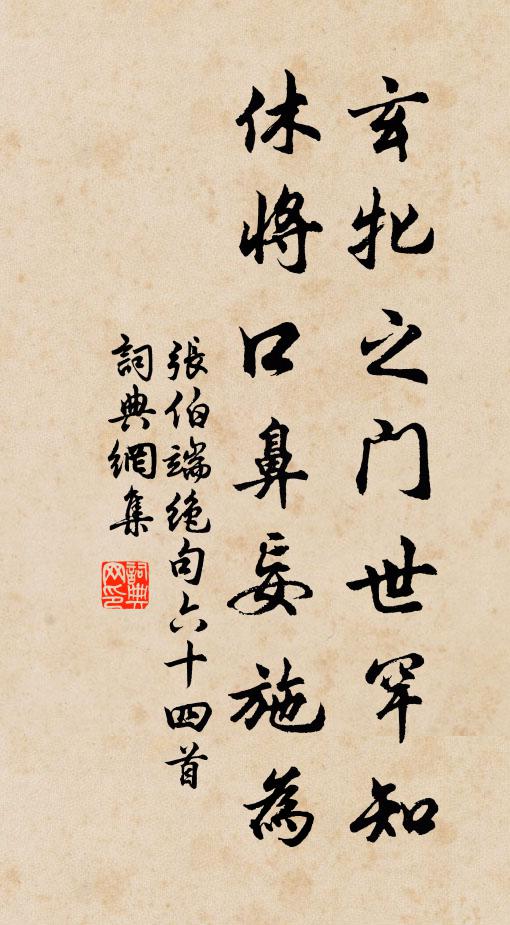 玄牝之门世罕知
休将口鼻妄施為
張伯端绝句六十四首
詞典網集
詞典
网印